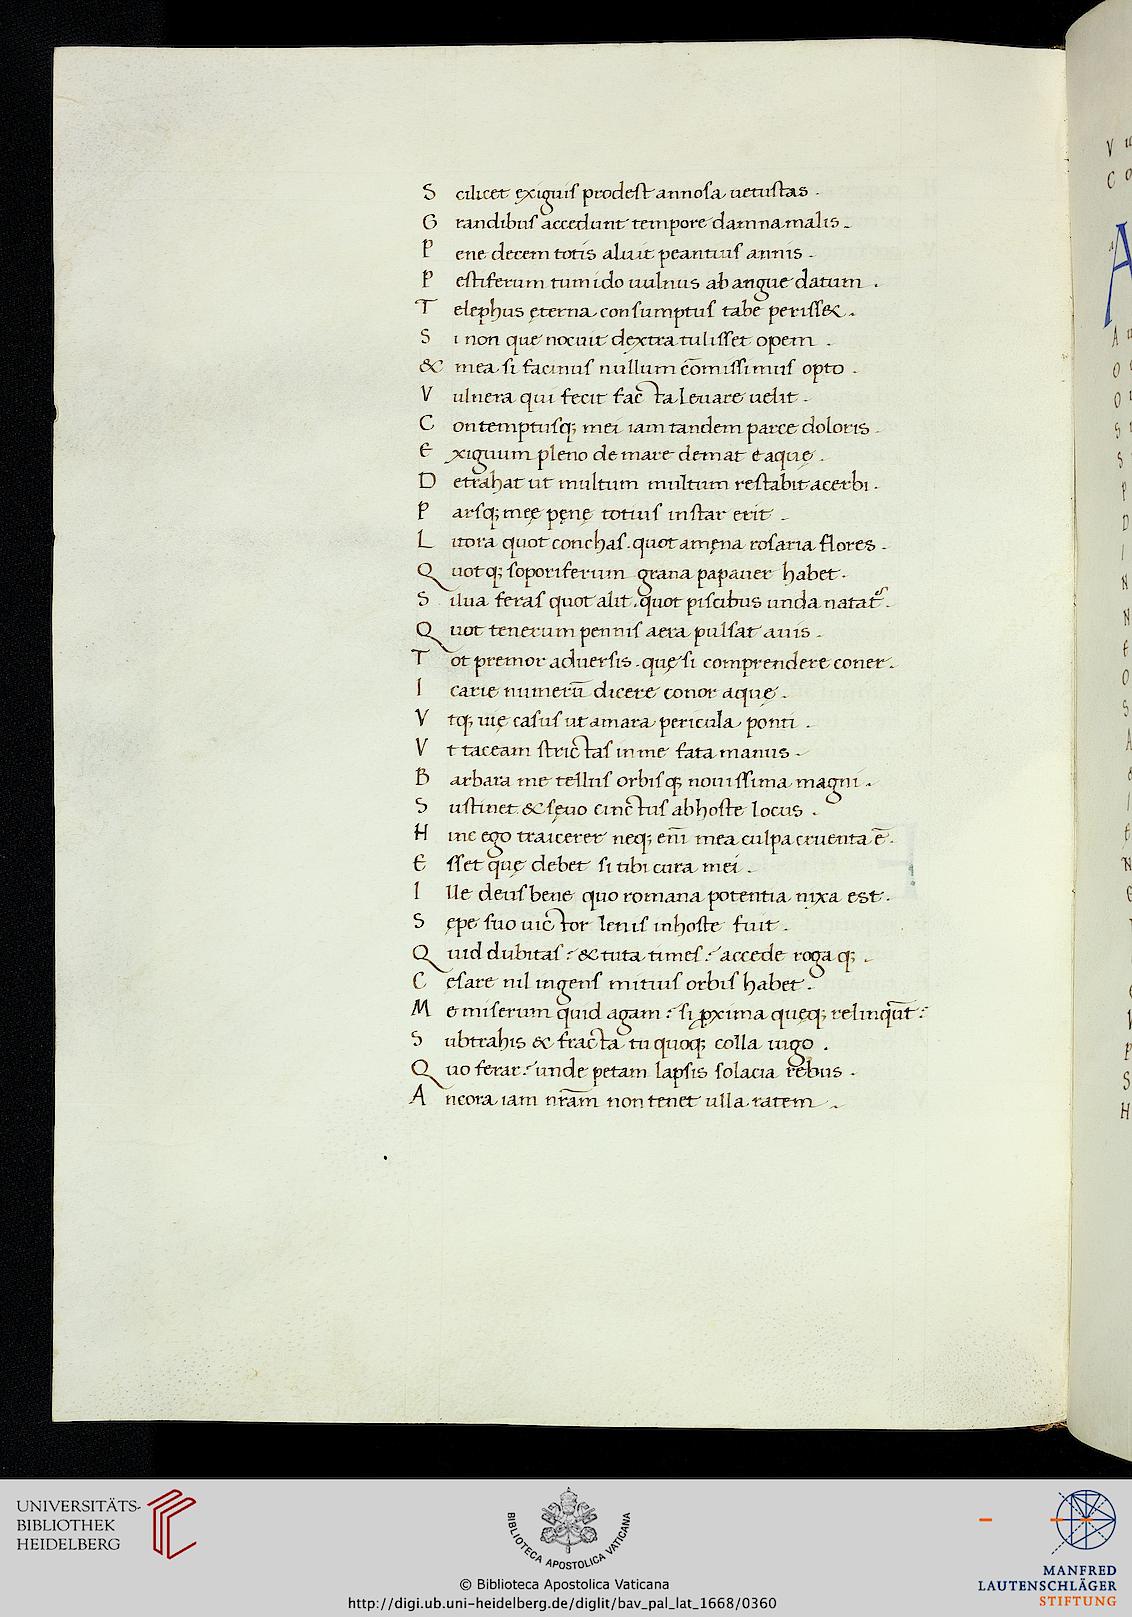 S cilicet exiguis prodest annosa uetustas .
G randibus accedunt tempore damna malis .
P ene decem totis aluit peantius annis .
P estiferum tumido uulnus ab angue datum .
T elephus ęterna consumptus tabe perisset .
S i non que nocuit dextra tulisset opem .
& mea si facinus nullum cōmissimus opto .
V ulnera qui fecit facta leuare uelit .
C ontemptusq; mei iam tandem parce doloris .
E xiguum pleno de mare demat eaquę .
D etrahat ut multum multum restabit acerbi .
P arsq; meę pęnę totius instar erit .
L itora quot conchas . quot amęna rosaria flores .
Q uotq; soporiferum grana papauer habet .
S ilua feras quot alit . quot piscibus unda natat᷑ .
Q uot tenerum pennis aera pulsat auis .
T ot premor aduersis . quę si comprendere coner .
I carie numerū dicere conor aquę .
V tq; uię casus ut amara pericula ponti .
V t taceam strictas in me fata manus .
B arbara me tellus orbisq; nouissima magni .
S ustinet & sęuo cinctus ab hoste locus .
H inc ego traicerer neq; eni̅ mea culpa cruenta ē .
E sset quę debet si tibi cura mei .
I lle deus bene quo romana potentia nixa est .
S ępe suo uictor lenis in hoste fuit .
Q uid dubitas ? & tuta times ? accede roga q; .
C esare nil ingens mitius orbis habet .
M e miserum quid agam ? si ꝓxima quęq; relinqūt ?
S ubtrahis & fracta tu quoq; colla iugo .
Q uo ferar ? unde petam lapsis solacia rebus .
A ncora iam nr̄am non tenet ulla ratem .
UNIVERSITÄTS-
BIBLIOTHEK
HEIDELBERG
BIBLIOTECA APOSTOLICA VATICANA
© Biblioteca Apostolica Vaticana
http://digi.ub.uni-heidelberg.de/diglit/bav_pal_lat_1668/0360
MANFRED
LAUTENSCHLÄGER
STIFTUNG